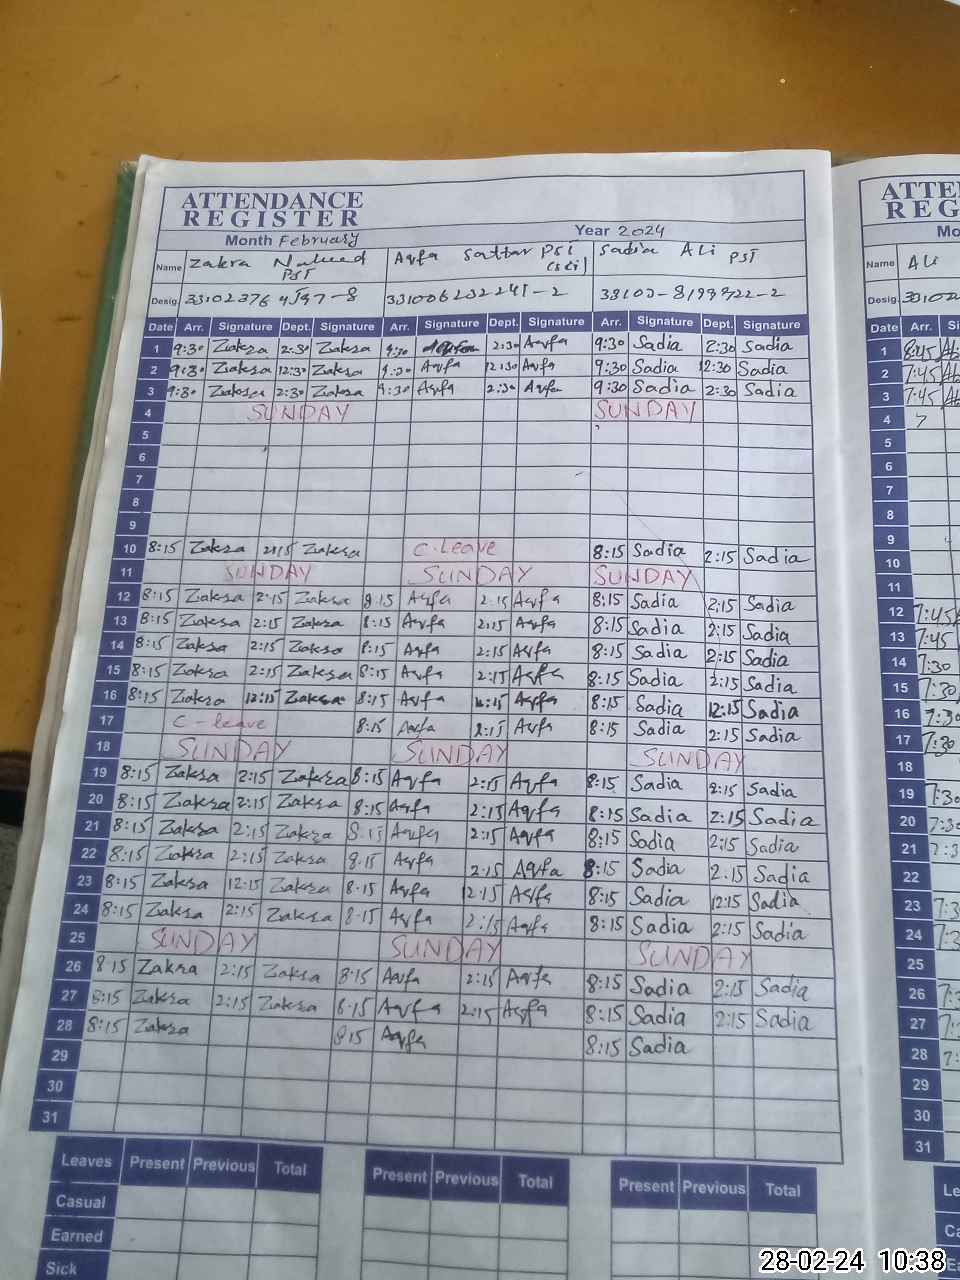 ATTENDANCE
REGISTER
Month February Year 2024
Name Zakra Naheed PST Aqfa Sattar PST (sci) Sadia Ali PST
Desig.
Date Arr. Signature Dept. Signature Arr. Signature Dept. Signature Arr. Signature Dept. Signature
1 9:30 Zakra 2:30 Zakra 9:30 Aqfa 2:30 Aqfa 9:30 Sadia 2:30 Sadia
2 9:30 Zakra 12:30 Zakra 9:30 Aqfa 12:30 Aqfa 9:30 Sadia 12:30 Sadia
3 9:30 Zakra 2:30 Zakra 9:30 Aqfa 2:30 Aqfa 9:30 Sadia 2:30 Sadia
4 SUNDAY SUNDAY
5
6
7
8
9
10 8:15 Zakra 2:15 Zakra C.Leave 8:15 Sadia 2:15 Sadia
11 SUNDAY SUNDAY SUNDAY
12 8:15 Zakra 2:15 Zakra 8:15 Aqfa 2:15 Aqfa 8:15 Sadia 2:15 Sadia
13 8:15 Zakra 2:15 Zakra 8:15 Aqfa 2:15 Aqfa 8:15 Sadia 2:15 Sadia
14 8:15 Zakra 2:15 Zakra 8:15 Aqfa 2:15 Aqfa 8:15 Sadia 2:15 Sadia
15 8:15 Zakra 2:15 Zakra 8:15 Aqfa 2:15 Aqfa 8:15 Sadia 2:15 Sadia
16 8:15 Zakra 12:15 Zakra 8:15 Aqfa 12:15 Aqfa 8:15 Sadia 12:15 Sadia
17 C-leave 8:15 Aqfa 2:15 Aqfa 8:15 Sadia 2:15 Sadia
18 SUNDAY SUNDAY SUNDAY
19 8:15 Zakra 2:15 Zakra 8:15 Aqfa 2:15 Aqfa 8:15 Sadia 2:15 Sadia
20 8:15 Zakra 2:15 Zakra 8:15 Aqfa 2:15 Aqfa 8:15 Sadia 2:15 Sadia
21 8:15 Zakra 2:15 Zakra 8:15 Aqfa 2:15 Aqfa 8:15 Sadia 2:15 Sadia
22 8:15 Zakra 2:15 Zakra 8:15 Aqfa 2:15 Aqfa 8:15 Sadia 2:15 Sadia
23 8:15 Zakra 12:15 Zakra 8:15 Aqfa 12:15 Aqfa 8:15 Sadia 12:15 Sadia
24 8:15 Zakra 2:15 Zakra 8:15 Aqfa 2:15 Aqfa 8:15 Sadia 2:15 Sadia
25 SUNDAY SUNDAY SUNDAY
26 8:15 Zakra 2:15 Zakra 8:15 Aqfa 2:15 Aqfa 8:15 Sadia 2:15 Sadia
27 8:15 Zakra 2:15 Zakra 8:15 Aqfa 2:15 Aqfa 8:15 Sadia 2:15 Sadia
28 8:15 Zakra 8:15 Aqfa 8:15 Sadia
29
30
31
Leaves Present Previous Total Present Previous Total Present Previous Total
Casual
Earned
Sick
Name Ali
Desig.
Date Arr.
1 8:45
2 7:45
3 7:45
4
5
6
7
8
9
10
11
12 7:45
13 7:45
14 7:30
15 7:30
16 7:30
17 7:30
18
19 7:30
20
21
22
23
24
25
26
27
28
29
30
31
28-02-24 10:38